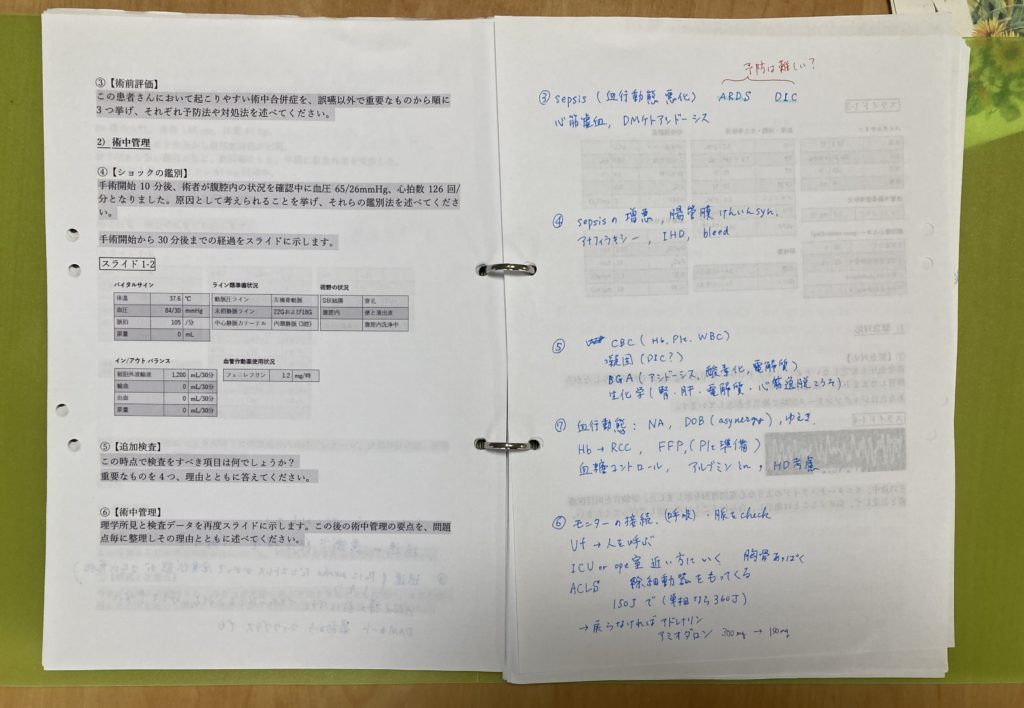 ③【術前評価】
この患者さんにおいて起こりやすい術中合併症を、誤嚥以外で重要なものから順に
3つ挙げ、それぞれ予防法や対処法を述べてください。
2) 術中管理
④【ショックの鑑別】
手術開始 10 分後、術者が腹腔内の状況を確認中に血圧 65/26mmHg、心拍数 126 回/
分となりました。原因として考えられることを挙げ、それらの鑑別法を述べてくださ
い。
手術開始から 30 分後までの経過をスライドに示します。
スライド 1-2
バイタルサイン
体温 37.6 ℃
血圧 84/30 mmHg
脈拍 105 /分
尿量 0 mL
ライン類準備状況
動脈圧ライン 左橈骨動脈
末梢静脈ライン 22Gおよび18G
中心静脈カテーテル 内頸静脈 (3腔)
術野の状況
S状結腸 穿孔
腹腔内 便と滲出液
腹腔内洗浄中
イン/アウト バランス
細胞外液輸液 1,200 mL/30分
輸血 0 mL/30分
出血 0 mL/30分
尿量 0 mL/30分
血管作動薬使用状況
フェニレフリン 1.2 mg/時
⑤【追加検査】
この時点で検査をすべき項目は何でしょうか？
重要なものを4つ、理由とともに答えてください。
⑥【術中管理】
理学所見と検査データを再度スライドに示します。この後の術中管理の要点を、問題
点毎に整理しその理由とともに述べてください。
予防は難しい？
③ sepsis (血行動態 悪化) ARDS DIC
心筋虚血, DMケトアシドーシス
④ sepsisの増悪, 腸管膜けんいんsyn.
アナフィラキシー, IHD, bleed
⑤ CBC (Hb, Plt. WBC)
凝固 (DIC?)
BGA (アシドーシス, 酸素化, 電解質)
生化学 (腎・肝・電解質・心筋逸脱こうそ)
⑦ 血行動態: NA, DOB (asynergy), ゆえき.
Hb→RCC, FFP, (Plt準備)
血糖コントロール, アルブミン in, HD考慮
⑥ モニターの接続. (呼吸)・脈をcheck
Vf → 人を呼ぶ
ICU or ope室 近い方にいく 胸骨あっぱく
ACLS 除細動器をもってくる
150J で (単相なら360J)
→戻らなければアドレナリン
アミオダロン 300mg → 150mg